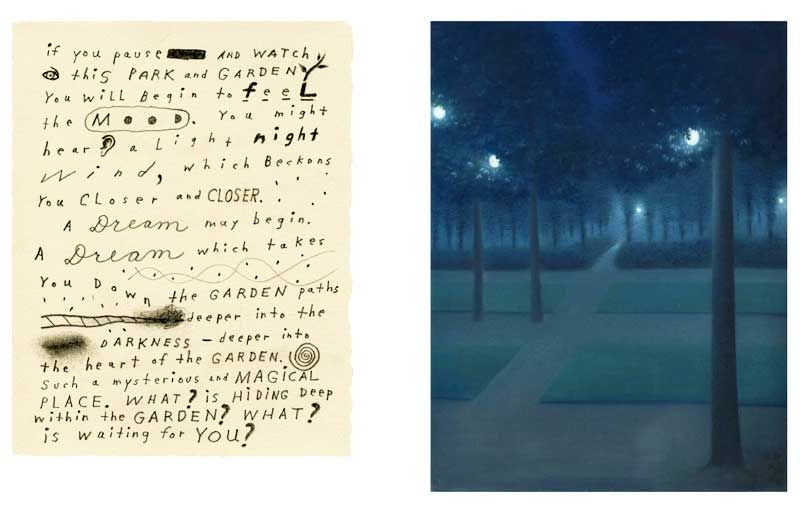 if you pause AND WATCH
this PARK and GARDEN
You will Begin to feeL
the MOOD. You might
hear a Light night
Wind, which Beckons
You CLoser and CLOSER.
A Dream may begin.
A Dream which takes
You Down the GARDEN paths
deeper into the
DARKNESS – deeper into
the heart of the GARDEN.
Such a mysterious and MAGICAL
PLACE. WHAT? is HiDiNG Deep
within the GARDEN? WHAT?
is waiting for YOU?